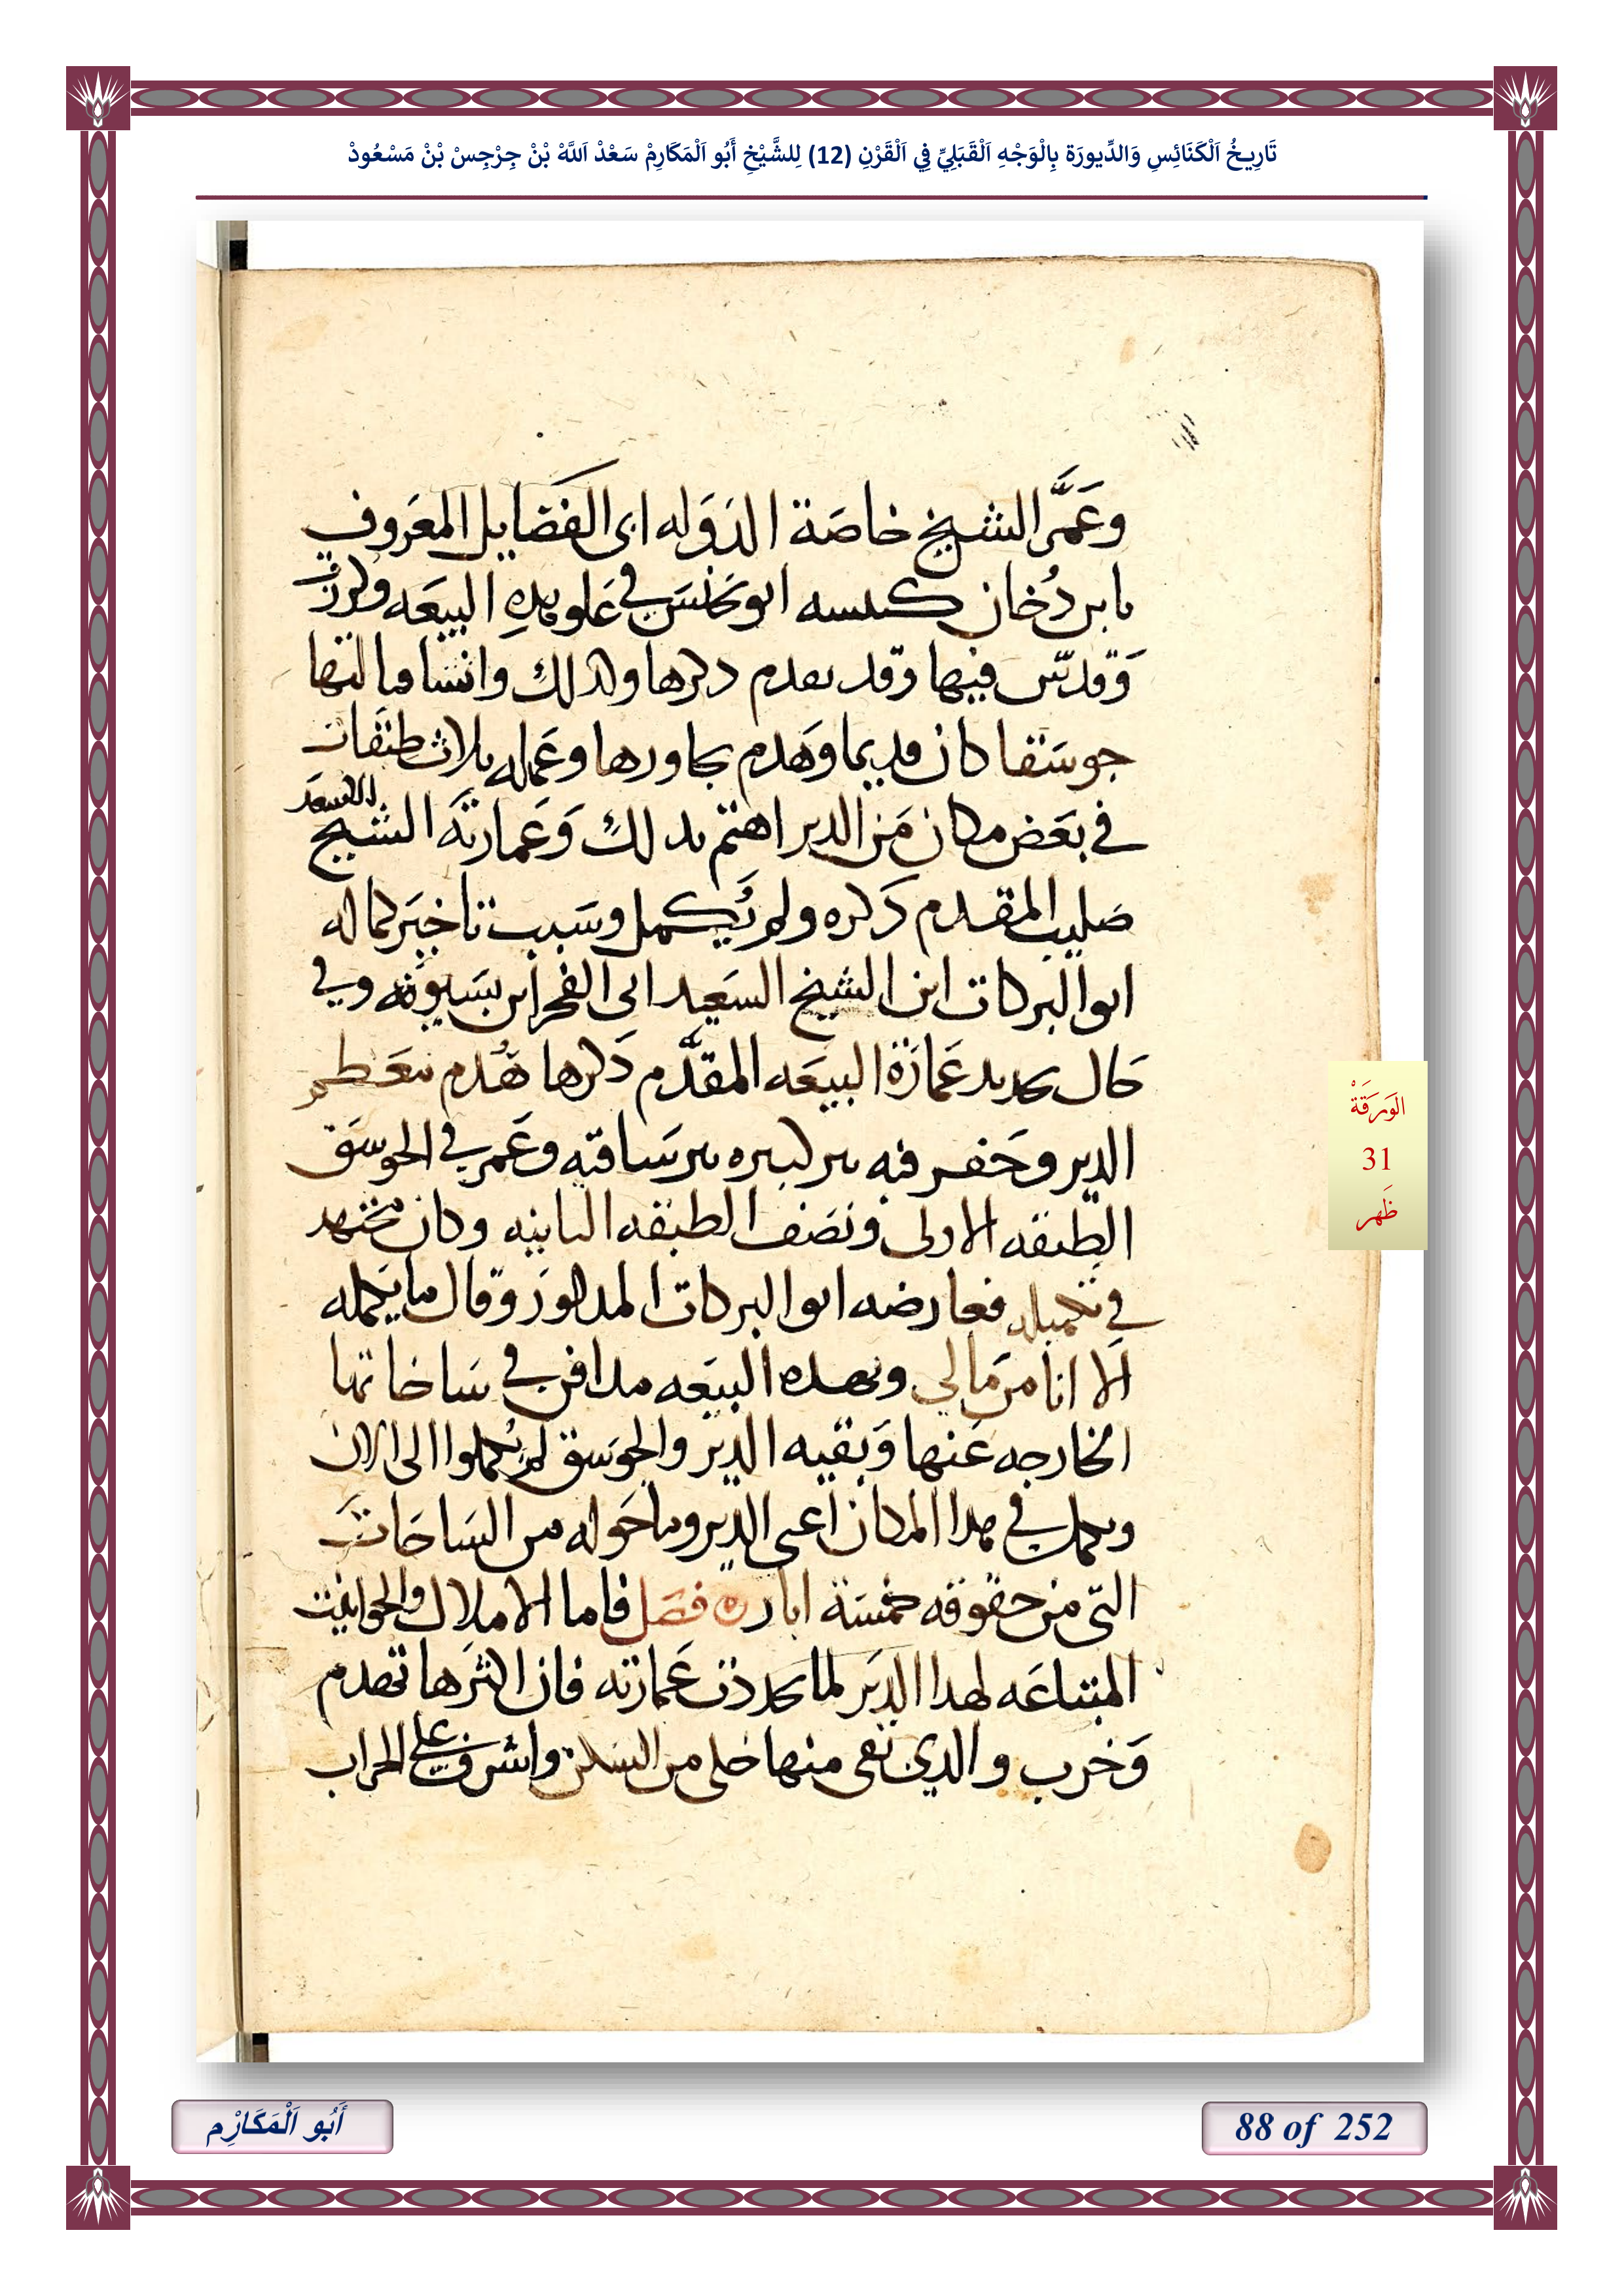 تَارِيخُ اَلْكَنَائِسِ وَالدِّيورَة بِالْوَجْهِ اَلْقَبَلِيِّ فِي اَلْقَرْنِ (12) لِلشَّيْخِ أَبُو اَلْمَكَارِمْ سَعْدْ اَللَّهْ بْنْ جِرْجِسْ بْنْ مَسْعُودْ
وعَمَّر الشيخ خاصة الدَوَله ابى الفَضايل المعَروف
بابن دُخان كنيسه ابو يحنس في عَلو هذهِ البيعَه وكرزت
وَقدّس فيها وقد تقدم ذكرها وكذلك وانشا قبالتها
جوسَقا كان قديما وَهدم بجاورها وعَمله ثلاث طبَقات
في بعَض مكان مَن الدير اهتم بذلك وَعَمارتَه الشيخ السعيد
صَليب المقدم ذَكره ولم تُكمل وسَبب تاخيَر كماله
ابو البركات ابن الشيخ السَعيد ابى الفخر ابن بسَيويَه وفي
حَال تجديد عَمارَة البيعَه المقدَّم ذكَرها هُدم معَظم
الدير وحَفر فيه بير كبيره بير سَاقيه وعَمر في الجوسَق
الطبقه الاولى ونصَف الطبقه الثانيه وكان مجتهد
في تكميله فعارضه ابو البركات المذكور وقال ما يَكمله
الَا انا من مَالي وبهذه البيعَه مدافن في سَاحاتها
الخارجه عَنها وَبقيه الدير والجوسَق لم يُكملوا الى الان
وبكل في هذا المكان اعني الدير وما حَوله من السَاحَات
التي من حقوقه خمسَة ابار ۞ فصَل فاما الاملاك والحوانيت
المبتاعَه لهذا الديَر لما تجددت عَمارته فان اكثرها تهدم
وَخرب والذي بقى منها خلى من السكن واشرف على الخراب
الوَرَقَةْ
31
ظَهر
أَبُو اَلْمَكَارِْم
88 of 252